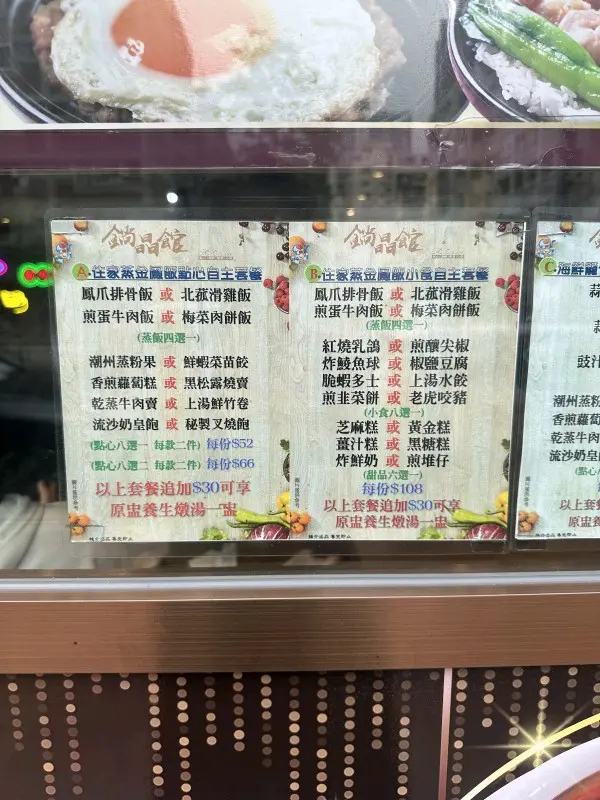 鍋晶館
A.住家蒸金鳳飯點心自主套餐
鳳爪排骨飯 或 北菰滑雞飯
煎蛋牛肉飯 或 梅菜肉餅飯
(蒸飯四選一)
潮州蒸粉果 或 鮮蝦菜苗餃
香煎蘿蔔糕 或 黑松露燒賣
乾蒸牛肉賣 或 上湯鮮竹卷
流沙奶皇飽 或 秘製叉燒飽
(點心八選一 每款二件) 每份$52
(點心八選二 每款二件) 每份$66
以上套餐追加$30可享
原盅養生燉湯一盅
圖片謹供參考
精守盛品 售完即止
鍋晶館
B.住家蒸金鳳飯小食自主套餐
鳳爪排骨飯 或 北菰滑雞飯
煎蛋牛肉飯 或 梅菜肉餅飯
(蒸飯四選一)
紅燒乳鴿 或 煎釀尖椒
炸鯪魚球 或 椒鹽豆腐
脆蝦多士 或 上湯水餃
煎韭菜餅 或 老虎咬豬
(小食八選一)
芝麻糕 或 黃金糕
薑汁糕 或 黑糖糕
炸鮮奶 或 煎堆仔
(甜品六選一)
每份$108
以上套餐追加$30可享
原盅養生燉湯一盅
圖片謹供參考
售完即止
C.海鮮龍
蒜
蒜
豉汁
潮州蒸
香煎蘿
乾蒸牛
流沙奶皇
以上套
原盅